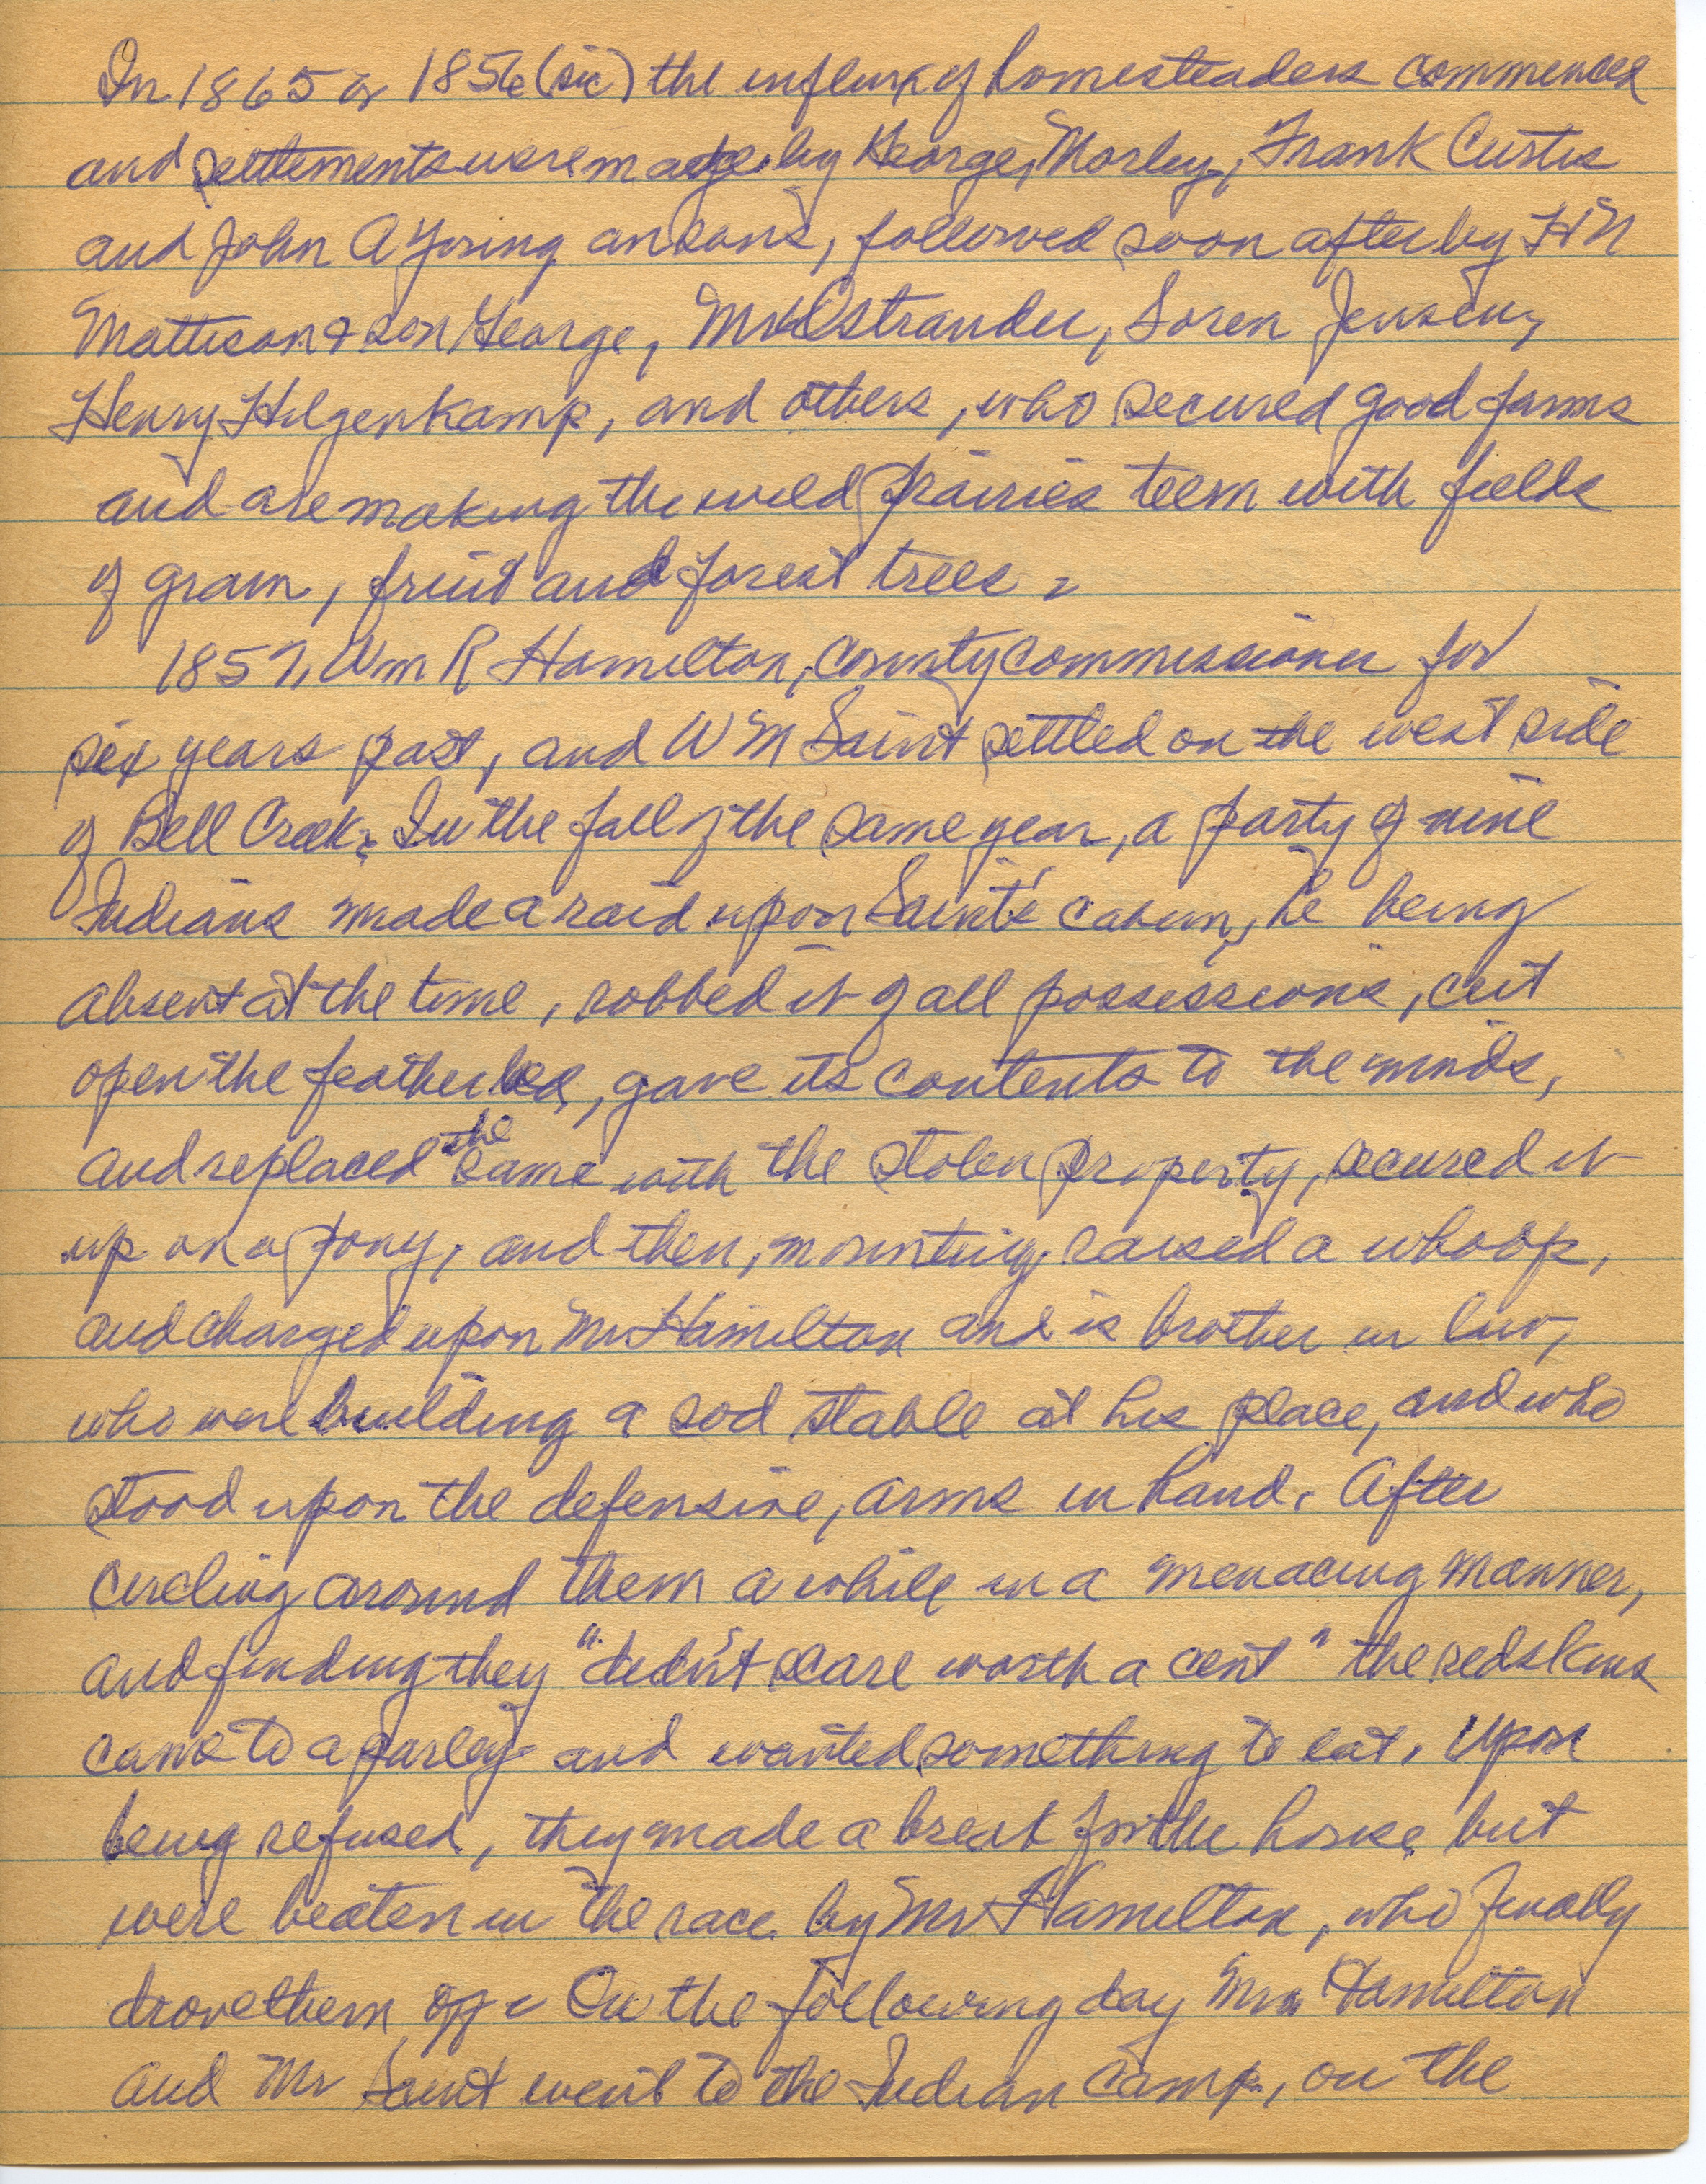 In 1865 or 1856 (sic) the influx of homesteaders commenced
and settlements were made by George, Morley, Frank Curtis
and John A Young an sons, followed soon after by H N
Mattison & son George, Mr Ostrander, Soren Jensen,
Henry Hilgenkamp, and others, who secured good farms
and are making the wild prairies teem with fields
of grain, fruit and forest trees.
1857, Wm R Hamilton, county commissioner for
six years past, and W M Saint settled on the west side
of Bell Creek. In the fall of the same year, a party of nine
Indians made a raid upon Saint's cabin, he being
absent at the time, robbed it of all possessions, cut
open the feather bed, gave its contents to the winds,
and replaced the same with the stolen property, secured it
up on a pony, and then, mounting, raised a whoop,
and charged upon Mr Hamilton and is brother in law,
who were building a sod stable at his place, and who
stood upon the defensive, arms in hand. After
circling around them a while in a menacing manner,
and finding they "didn't scare worth a cent" the redskins
came to a parley and wanted something to eat. Upon
being refused, they made a break for the house but
were beaten in the race by Mr Hamilton, who finally
drove them off. On the following day Mr Hamilton
and Mr Saint went to the Indian camp, on the